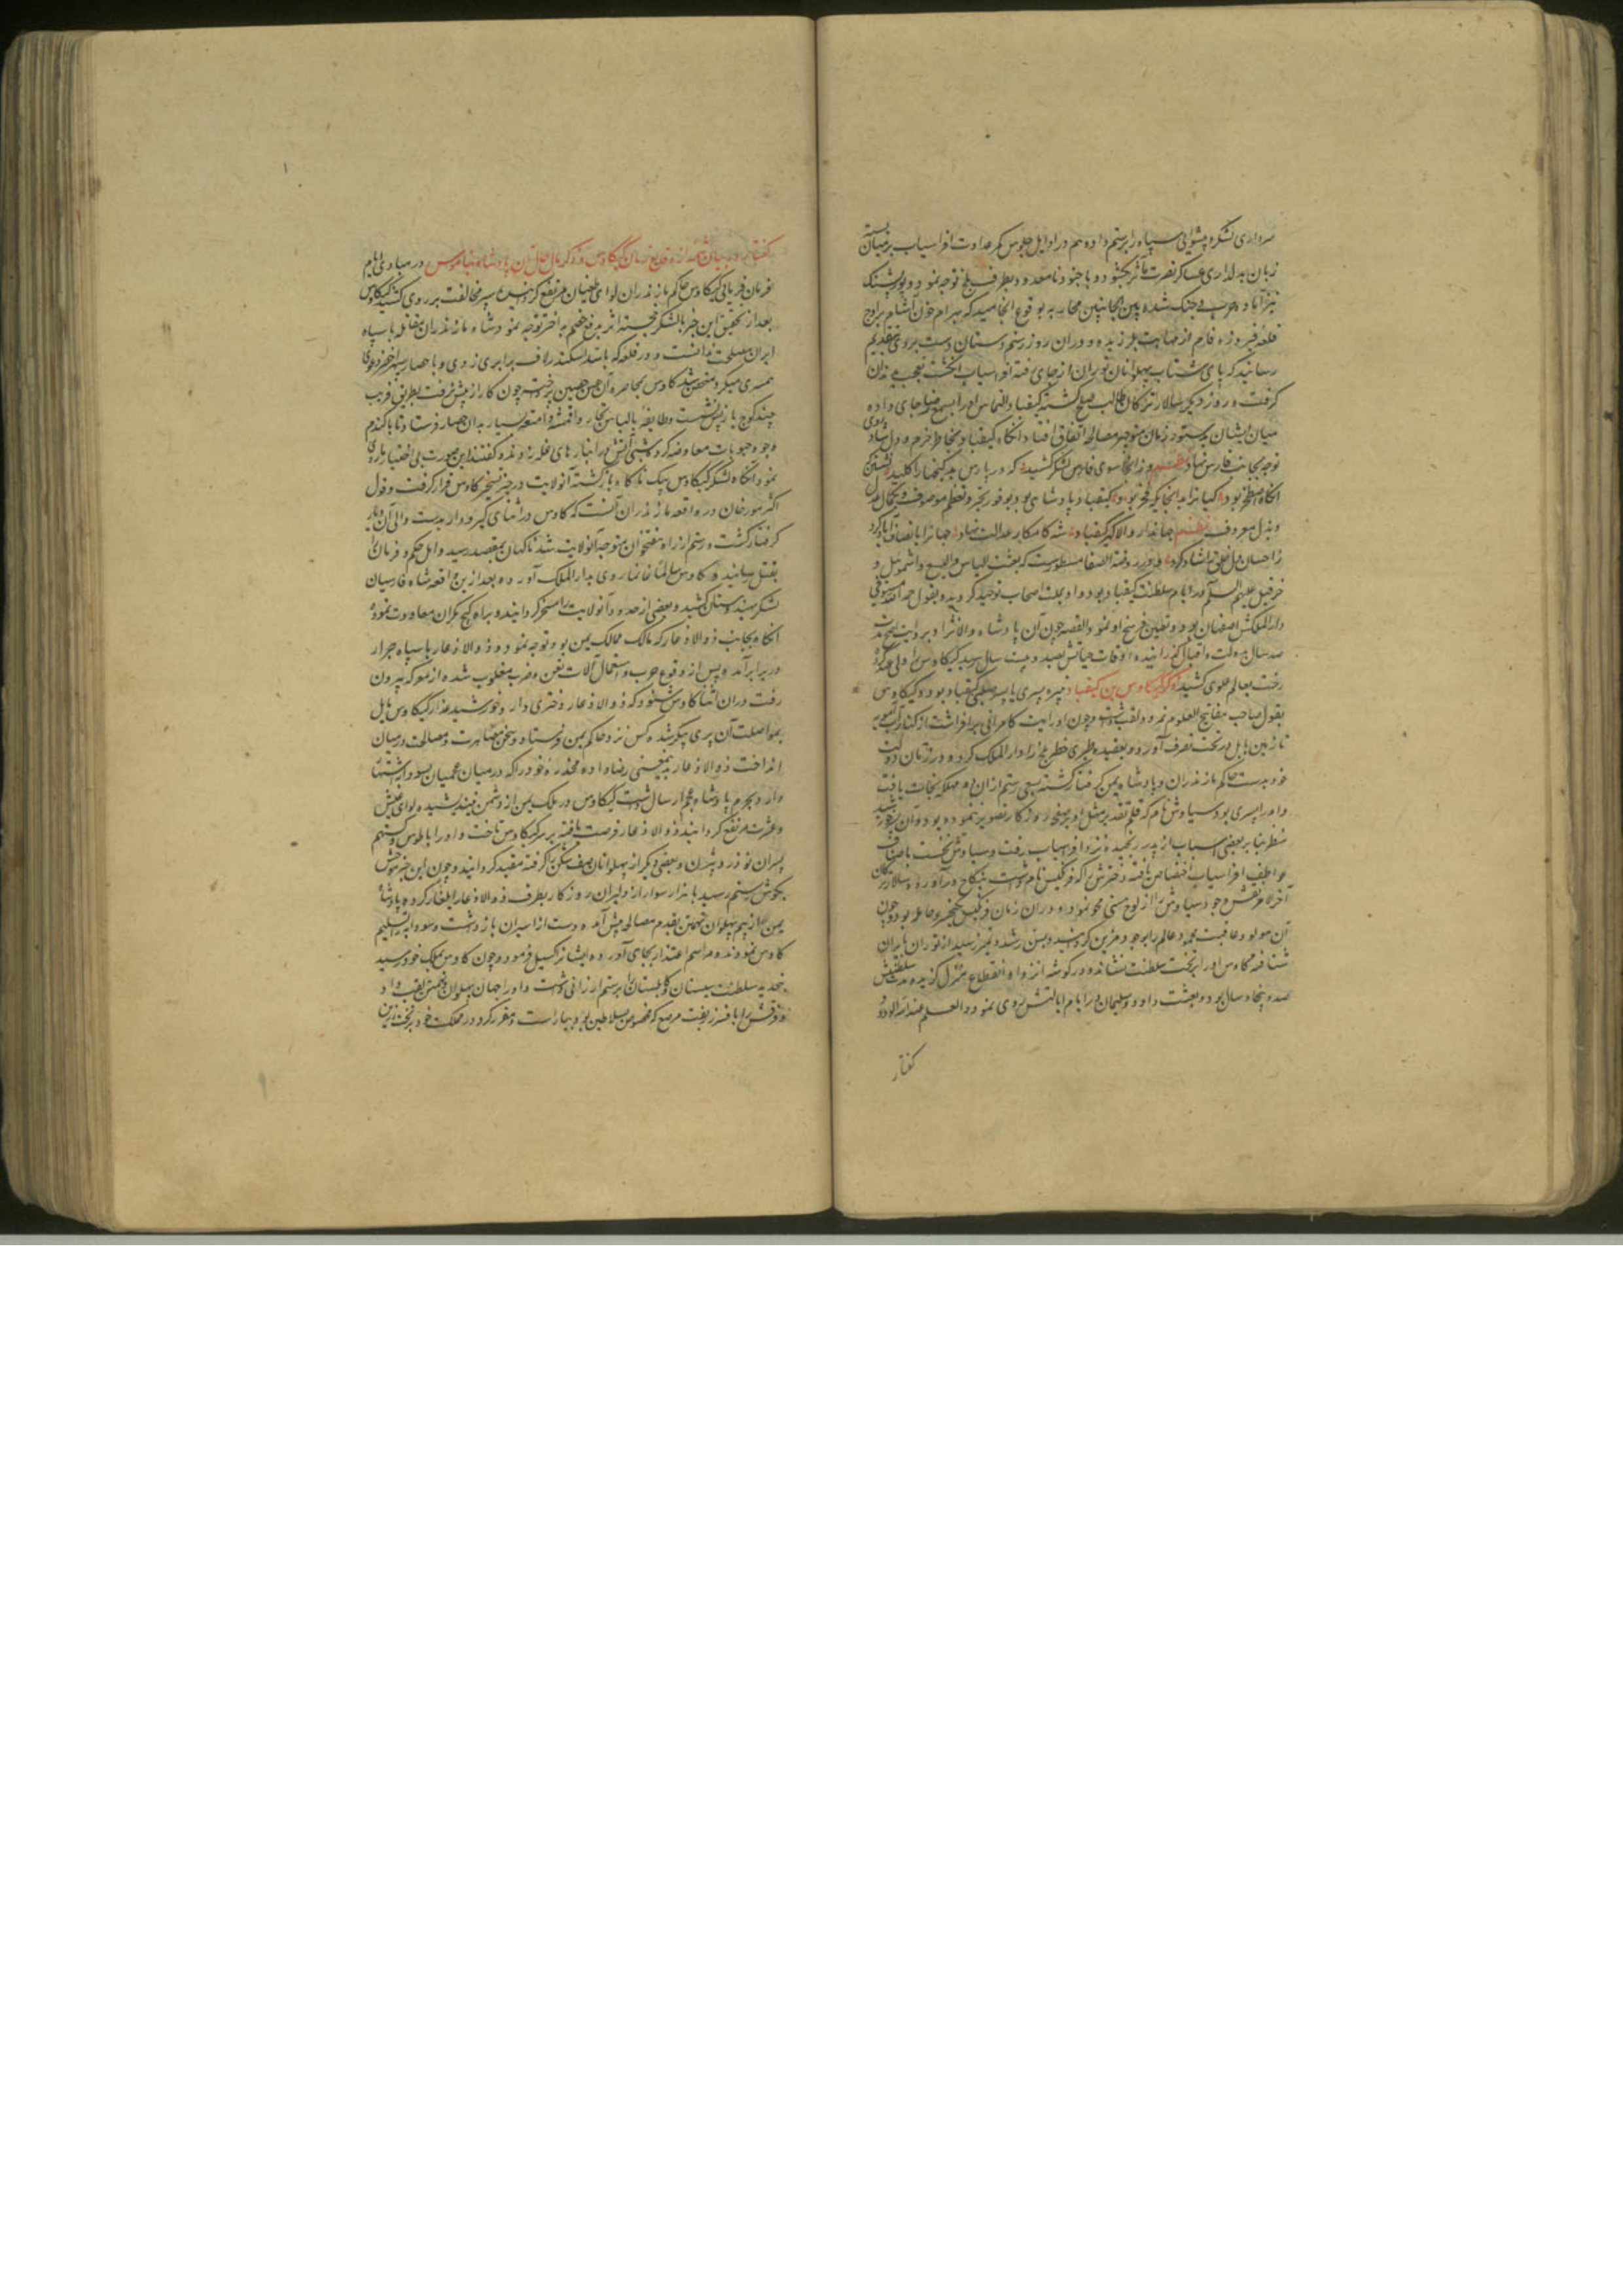 سرداری لشکر و پیشوائی سپاه را برستم داده هم در اوایل جلوس کمر عداوت افراسیاب بر میان بسته
زبان بدلداری عساکر نصرت مآثر بکشود و با جنود نامعدود بطرف بلخ توجه نمود و پور پشنک
نیز آماده حرب و جنک شده بین الجانبین محاربه بوقوع انجامید که بهرام خون آشام بر اوج
قلعه فیروزه فام از مهابت بلرزیده و در ان روز رستم دستان دست بردی بتقدیم
رسانید که پای شتاب پهلوانان توران از جای رفته افراسیاب انکشت تعجب بدندان
کرفت و روز دیکر سالار ترکان طالب صلح کشته کیقباد التماس او را بسمع رضا جای داده
میان ایشان بدستور زمان منوچهر مصالحه اتفاق افتاد انکاه کیقباد بخاطر خرم و دل شاد روی
توجه بجانب فارس نهاد نظم وز انجا سوی فارس لشکر کشید که در پارس بد کنجها را کلید نشستن
انکه اصطخر بود کیانرا بدانجایکه فخر بود و کیقباد پادشاهی بود بوفور تجبر و تعظم موصوف و بکمال عدل
و بذل معروف نظم جهاندار والا کهر کیقباد شه کامکار عدالت نهاد جهانرا بانصاف آباد کرد
ز احسان دل خلق را شاد کرد و در روضة الصفا مسطورست که بعثت الیاس و الیسع و اشموئیل و
حزقیل علیهم السلام در ایام سلطنت کیقباد بود و او بملت اصحاب توحید کرویده بقول حمدالله مستوفی
دارالملکش اصفهان بود و تعیین فرسخ او نمود القصه چون آن پادشاه والانژاد بروایت اصح مدت
صد سال بدولت و اقبال کذرانیده اوقات حیاتش بصد و بیست سال رسید کیکاوس را ولی عهد کرده
رخت بعالم علوی کشید ذکر کیکاوس بن کیقباد نبیره پسری یا پسر صلبی کیقباد بود و کیکاوس
بقول صاحب مفاتیح العلوم نمرود لقب داشت و چون او رایت کامرانی برافراشت از کنار آب آمویه
تا زمین بابل در تحت تصرف آورد و بعقیده طبری خطه بلخ را دارالملک کرد و در زمان دولت
خود بدست حاکم مازندران و پادشاه یمن کرفتار کشته بسعی رستم از ان دو مهلکه نجات یافت
و او را پسری بود سیاوش نام که قلم تقدیر مثل او بر صفحه روزکار تصویر ننموده بود و آن خورشید
منظر بنا بر بعضی اسباب از پدر رنجیده نزد افراسیاب رفت و سیاوش نخست باصناف
عواطف افراسیاب اختصاص یافته دخترش را که فرنکیس نام داشت بنکاح در آورد و سالار ترکان
آخرالامر نقش وجود سیاوش را از لوح هستی محو نمود و در ان زمان فرنکیس بکیخسرو حامله بود و چون
آن مولود عاقبت محمود عالم را بوجود مزین کردانید و بسن رشد و تمیز رسید از توران بایران
شتافته کاوس او را بر تخت سلطنت نشانده در کوشه انزوا و انقطاع منزل کزید مدت سلطنتش
صد و پنجاه سال بود و بعثت داود و سلیمان در ایام ایالتش روی نمود و العلم عندالله الودود
کفتار
کفتار در بیان شمه از وقایع زمان کیکاوس و ذکر مآل حال آن پادشاه با ناموس در مبادی ایام
فرمان فرمائی کیکاوس حاکم مازندران لوای طغیان مرتفع کردانیده سپر مخالفت بر روی کشید کیکاوس
بعد از تحقیق این خبر با لشکر خجسته اثر بدفع خصم بد اختر توجه نمود شاه مازندران مقابله با سپاه
ایران مصلحت ندانست و در قلعه که با سد اسکندر لاف برابری زدی و با حصار سپهر اخضر دعوی
همسری میکرد متحصن شد کاوس بمحاصره آن حصن حصین پرداخت چون کار از پیش نرفت بطریق فریب
چند کوچ باز پس نشست و طایفه را بلباس تجار و اقمشه و امتعه بسیار بدان حصار فرستاد تا با کندم
و جو و حبوبات معاوضه کردند و شبی آتش در انبارهای غله زدند و کفتند این صورت بی اختیار روی
نمود آنکاه لشکر کیکاوس بیک ناکاه بازکشته آن ولایت در حیز تسخیر کاوس قرار کرفت و قول
اکثر مورخان در واقعه مازندران آنست که کاوس در اثنای کیر و دار بدست والی آن دیار
کرفتار کشت و رستم از راه هفتخوان متوجه آن ولایت شد ناکهان بمقصد رسید و اهل حکم و فرمان را
بقتل رسانیده کاوس سالما غانما روی بدارالملک آورد و بعد از بن واقعه شاه فارسیان
لشکر بهندوستان کشید و بعضی از حدود آن ولایت را مسخر کردانید و براه کیچ مکران معاودت نموده
انکاه بجانب ذوالاذعار که مالک ممالک یمن بود توجه نمود و ذوالاذعار با سپاه جرار
در برابر آمد و پس از وقوع حرب و استعمال آلات طعن و ضرب مغلوب شده از معرکه بیرون
رفت در ان اثنا کاوس شنود که ذوالاذعار دختری دارد خورشید عذار کیکاوس مایل
بمواصلت آن پری پیکر شده کس نزد حاکم یمن فرستاد و سخن مصاهرت و مصالحت در میان
انداخت ذوالاذعار بدین معنی رضا داده مخدره خود را که در میان عجمیان بسودابه اشتهار
دارد بحرم پادشاه عجم ارسال داشت کیکاوس در ملک یمن از دشمن نیندیشیده لوای عیش
و عشرت مرتفع کردانید ذوالاذعار فرصت یافته بر سر کیکاوس تاخت و او را با طوس و کستهم
پسران نوذر و بیژن و بعضی دیکر از پهلوانان صف شکن کرفته مقید کردانید و چون این خبر موحش
بکوش رستم رسید با هزار سوار از دلیران روزکار بطرف ذوالاذعار ایلغار کرده پادشاه
یمن از بیم پهلوان تهمتن بقدم مصالحه پیش آمد و دست از اسیران باز داشت و سودابه را تسلیم
کاوس نموده مراسم اعتذار بجای آورده ایشانرا کسیل فرمود و چون کاوس بملک خود رسید
بتجدید سلطنت سیستان و کابلستان را برستم ارزانی داشت و او را جهان پهلوان و تهمتن لقب داد
و فرقش را بافسر زربفت مرصع که مخصوص سلاطین بود بیاراست و مقرر کرد در مملکت خود بر تخت زرین